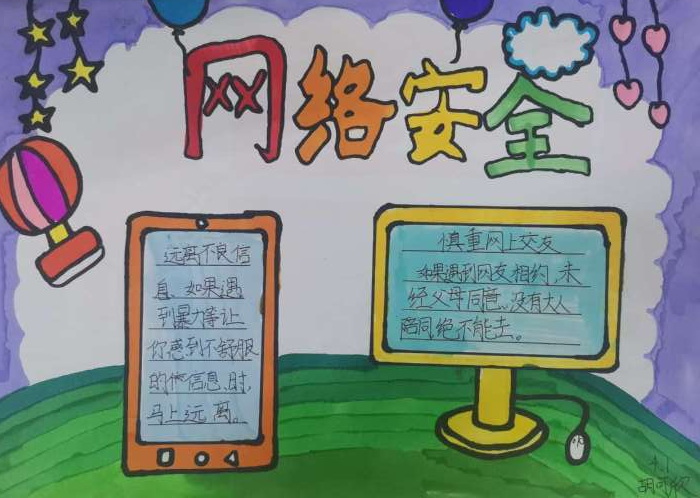 网络安全
远离不良信
息、如果遇
到暴力等让
你感到不舒服
的信息、时,
马上远离。
慎重网上交友
如果遇到网友相约,未
经父母同意、没有大人
陪同绝不能去。
4.1